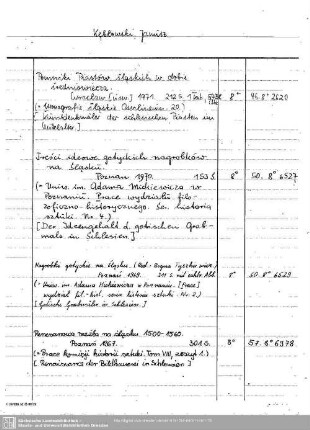 Kębłowski, Janusz
Pomniki Piastów śląskich w dobie
średniowiecza.
Wrocław [usw.] 1971. 212 S. 8° 96. 8° 2620
(= Monografie śląskie Ossolineum. 20.)
[Kunstdenkmäler der schlesischen Piasten im
Mittelalter]
Treści ideowe gotyckich nagrobków
na Śląsku.
Poznań 1970. 153 S 8° 50. 8° 6527
(= Univ. im. Adama Mickiewicza w
Poznaniu. Prace wydziału filo-
zoficzno-historycznego. Se. historia
sztuki Nr. 4.)
[Der Ideengehalt d. gotischen Grab-
male in Schlesien]
Nagrobki gotyckie na Śląsku. (Red.
Poznań 1969. 8° 50. 8° 6529
(= Univ. im. Adama Mickiewicza w Poznaniu. [Prace]
wydział fil.-hist. seria historia sztuki. Nr. 2.)
[Gotische Grabmäler in Schlesien]
Renesansowa rzeźba na Śląsku 1500-1560.
Poznań 1967. 301 S. 8° 57. 8° 6378
(= Prace Komisji historii sztuki. Tom VIII, zeszyt 1.)
[Renaissance der Bildhauerei in Schlesien]